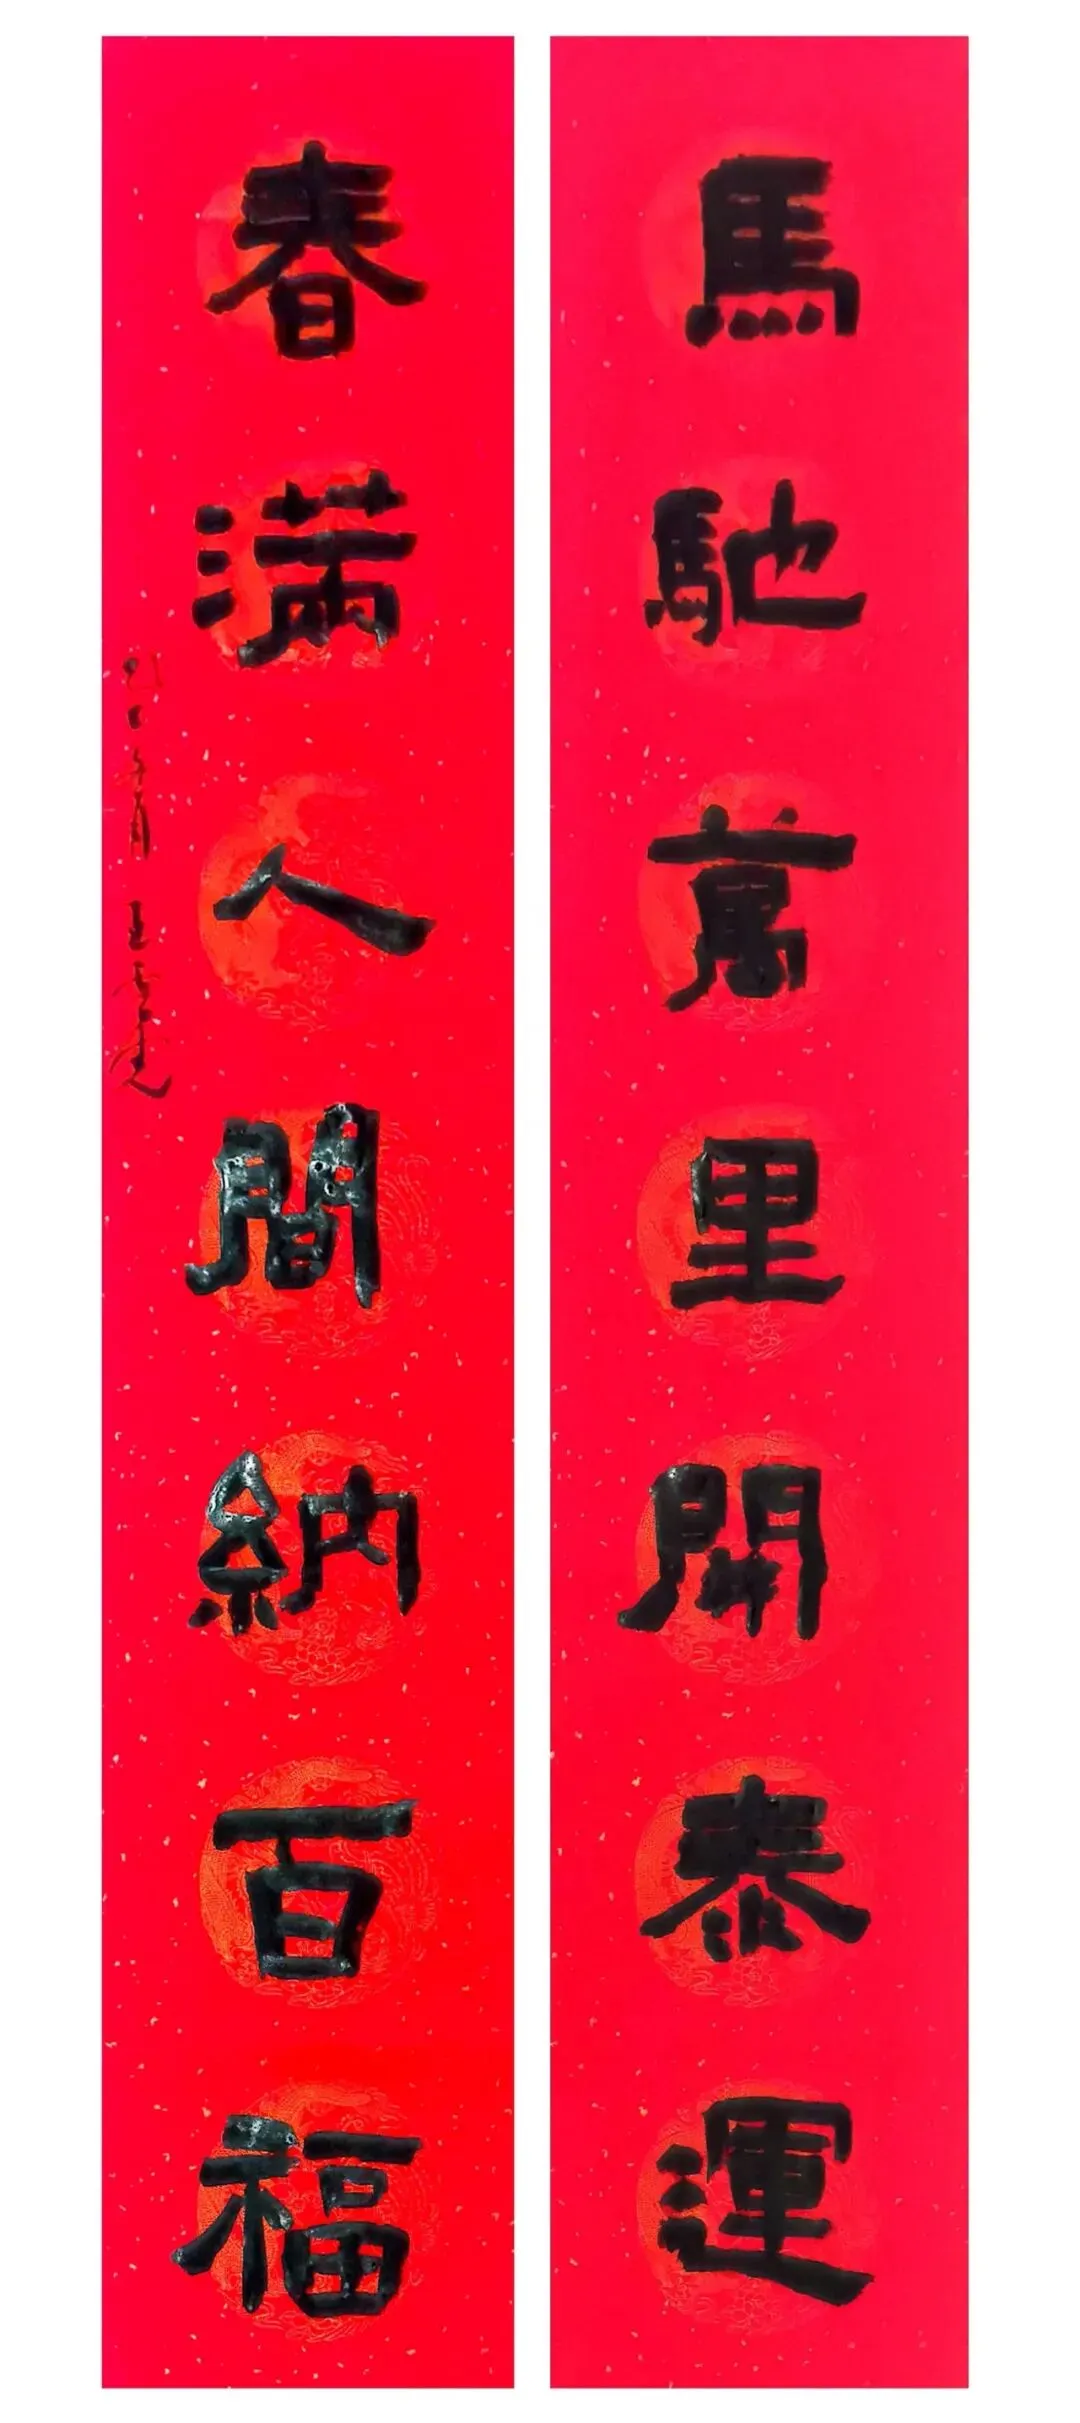 馬馳萬里開泰運
春满人間納百福